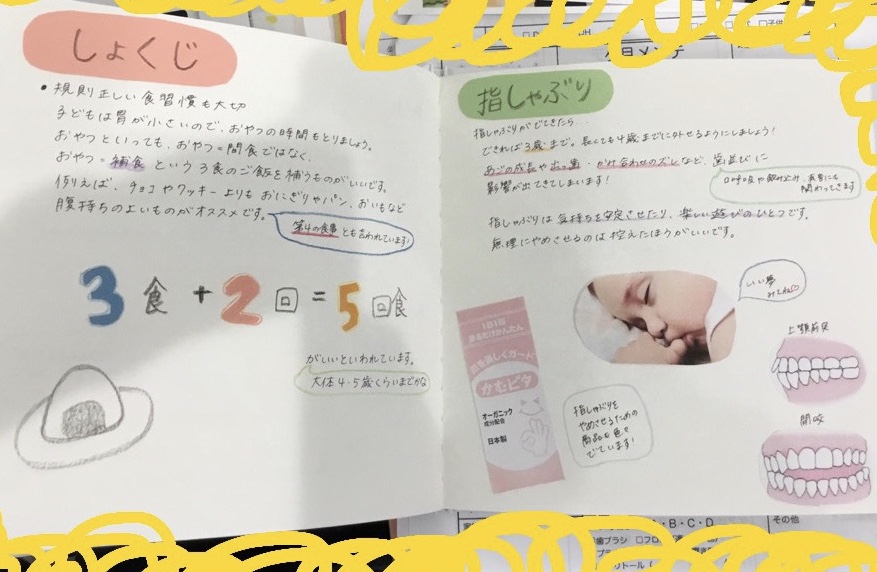 しょくじ
・規則正しい食習慣も大切
子どもは胃が小さいので、おやつの時間もとりましょう。
おやつといっても、おやつ=間食ではなく、
おやつ=補食という3食のご飯を補うものがいいです。
例えば、チョコやクッキーよりもおにぎりやパン、おいもなど
腹持ちのよいものがオススメです。
第4の食事とも言われています!
3食+2回=5回食
がいいといわれています。
大体4・5歳くらいまでかな
指しゃぶり
指しゃぶりができてたら…
できれば3歳まで。長くても4歳までに外せるようにしましょう!
あごの成長や出っ歯・かみ合わせのズレなど、歯並びに
影響が出てきてしまいます!
口呼吸や飲み込み、発音にも
関わってきます
指しゃぶりは気持ちを安定させたり、楽しい遊びのひとつです。
無理にやめさせるのは控えたほうがいいです。
いい夢
みてね♡
1日1回
塗るだけかんたん
爪を優しくガード
かむピタ
オーガニック
成分配合
日本製
指しゃぶりを
やめさせるための
商品も色々
でています!
上顎前突
開咬
B・C・D
その他
歯ブラシ □フロ
リトール